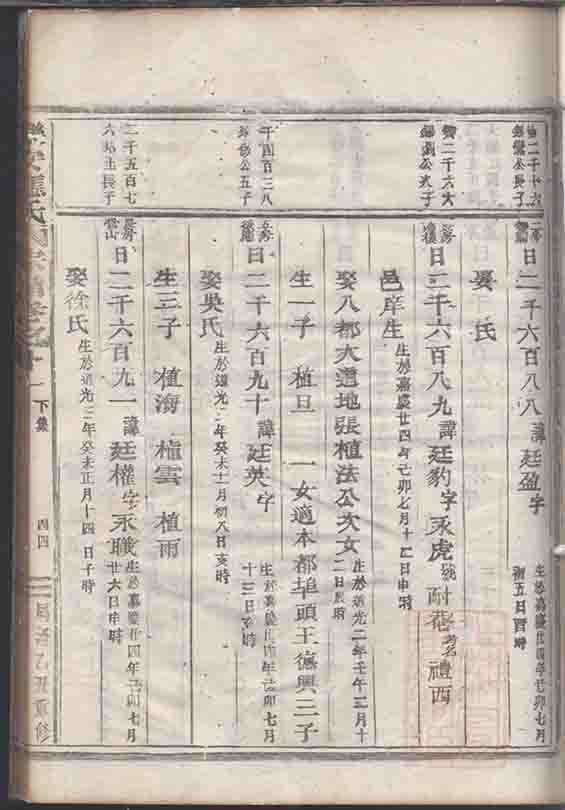 二千六百八八諱廷盈字
生於嘉慶廿四年己卯七月
初五日酉時
娶 氏
二千六百八九諱廷豹字永虎號耐菴考名禮西
邑庠生
生於嘉慶廿四年己卯七月十二日申時
娶八都大道地張植法公次女
生於道光二年壬午三月十
二日辰時
生一子 植旦 一女適本都埠頭王德興三子
千四百三八
公五子
二千六百九十諱廷英字
生於嘉慶廿四年己卯七月
十三日亥時
娶吳氏
生於道光三年癸未十一月初八日亥時
生三子 植海 植雲 植雨
二千五百七
六 長子
二千六百九一諱廷權字永職
生於嘉慶廿四年己卯七月
廿六日申時
娶徐氏
生於道光三年癸未正月十四日子時
下集
四四
乙丑重修